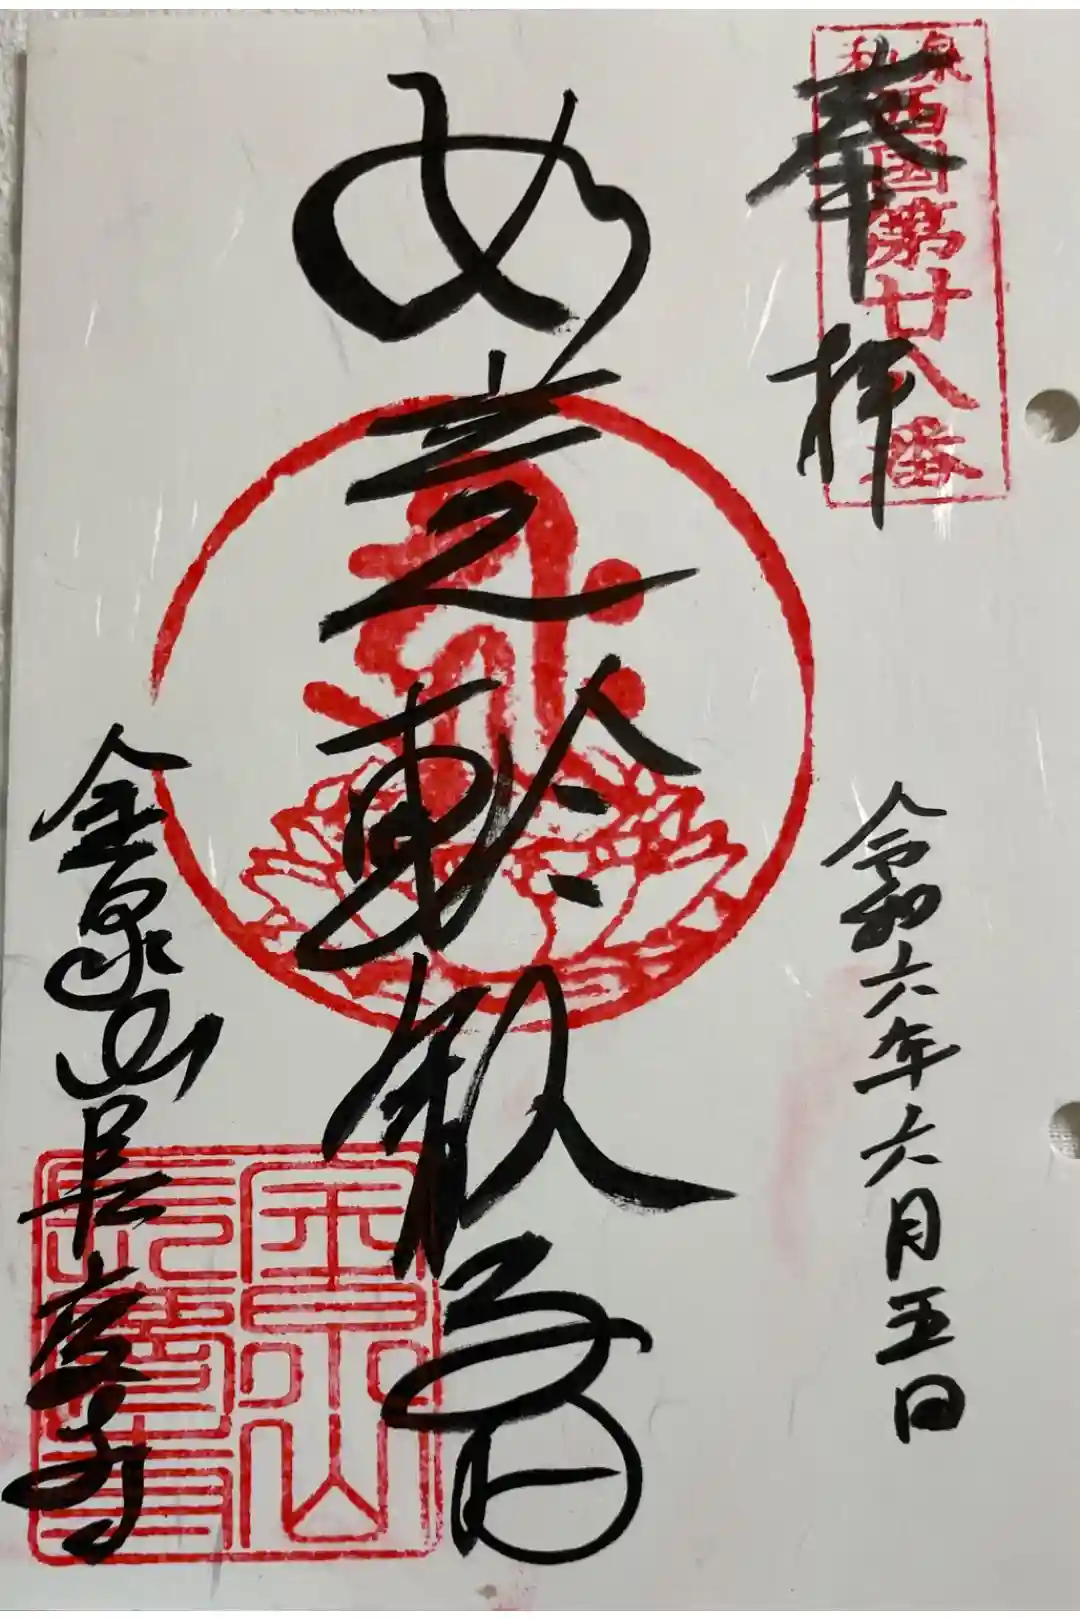 和泉西国第廿八番
奉拝
令和六年六月五日
如意輪観音
金泉山長慶寺
金泉山
長慶寺